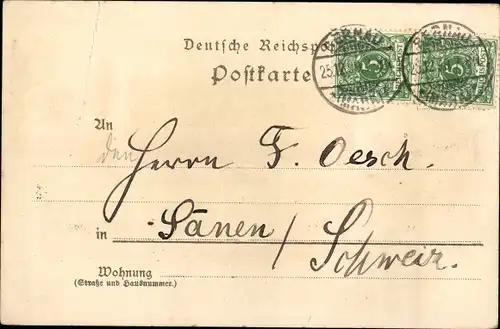 Deutsche Reichspo
Postkarte
BERNAU
BERNAU
25.
5
5
An
den
Herrn F. Oesch.
in Sänen /
Schweiz.
Wohnung
(Straße und Hausnummer.)